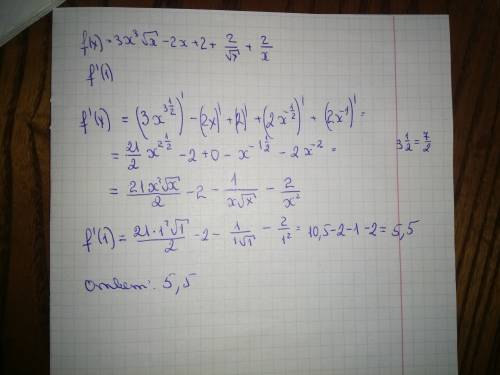 f(x) = 3x³√x - 2x + 2 + 2/√x + 2/x
f'(1)
f'(x) = (3x^(3 1/2))' - (2x)' + (2)' + (2x^(-1/2))' + (2x^(-1))' =
= 21/2 x^(2 1/2) - 2 + 0 - x^(-1 1/2) - 2x^(-2) =
3 1/2 = 7/2
= 21x²√x/2 - 2 - 1/(x√x) - 2/x²
f'(1) = 21·1²√1/2 - 2 - 1/(1√1) - 2/1² = 10,5 - 2 - 1 - 2 = 5,5
ответ: 5,5